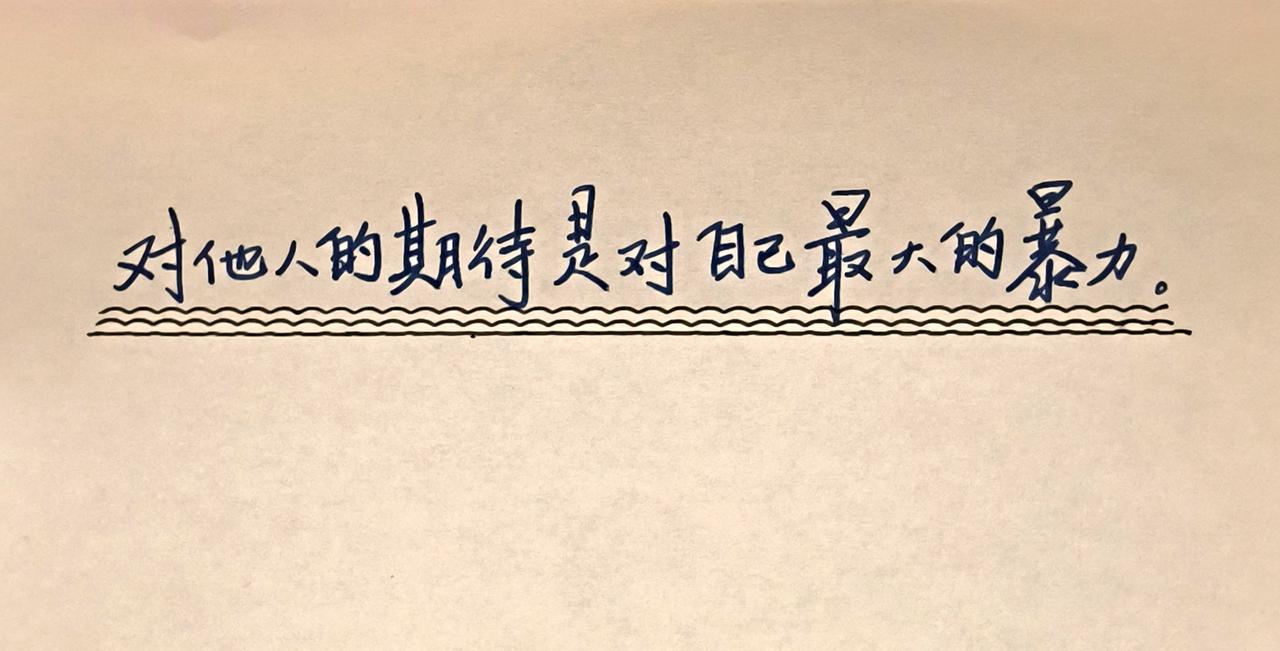 对他人的期待是对自己最大的暴力。